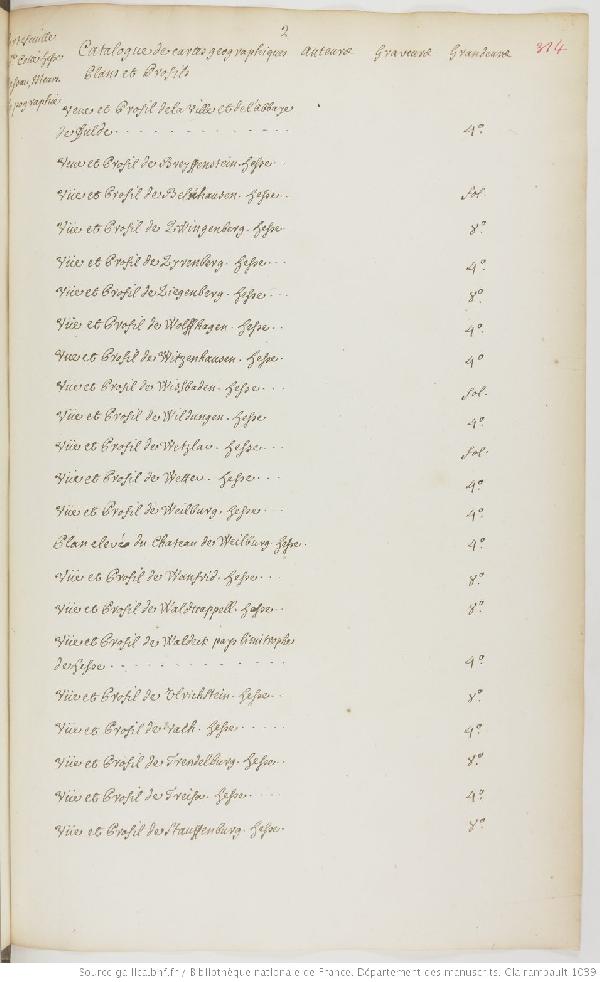 2
Catalogue de cartes geographiques Auteurs Graveurs Grandeurs 324
Plans et Profils
Vëue et Profil de la Ville et de l'abbaye
de Fulde . . . . . . . . . . . . 4º.
Vüe et Profil de Breyffenstein. hesse . .
Vüe et Profil de Belnhausen. hesse . . fol.
Vüe et Profil de Zwingenberg. hesse 8º.
Vüe et Profil de Zyrenberg. hesse . . . 4º.
Vüe et Profil de Ziegenberg. hesse . . . 8º.
Vüe et Profil de Wolffhagen. hesse . . 4º.
Vüe et Profil de Witzenhausen. hesse . 4º
Vüe et Profil de Wisbaden. hesse . . . fol.
Vüe et Profil de Wildungen. hesse 4º.
Vüe et Profil de Wetzlar. hesse . . . fol.
Vüe et Profil de Wetter. hesse . . . 4º.
Vüe et Profil de Weilburg. hesse . . . 4º.
Plan elevé du chateau de Weilburg. hesse. 4º.
Vüe et Profil de Wanfrid. hesse . . . 8º.
Vüe et Profil de Waldcappell. hesse . . 8º.
Vüe et Profil de Waldeck pays limitrophe
de hesse . . . . . . . . . . . . 4º.
Vüe et Profil de Ulrichstein. hesse . . 8º.
Vüe et Profil de Vach. hesse . . . . . 4º.
Vüe et Profil de Trendelburg. hesse . . 8º.
Vüe et Profil de Treisa. hesse . . . . 4º.
Vüe et Profil de Stauffenburg. hesse . 8º.
Source gallica.bnf.fr / Bibliothèque nationale de France. Département des manuscrits. Clairambault 1039